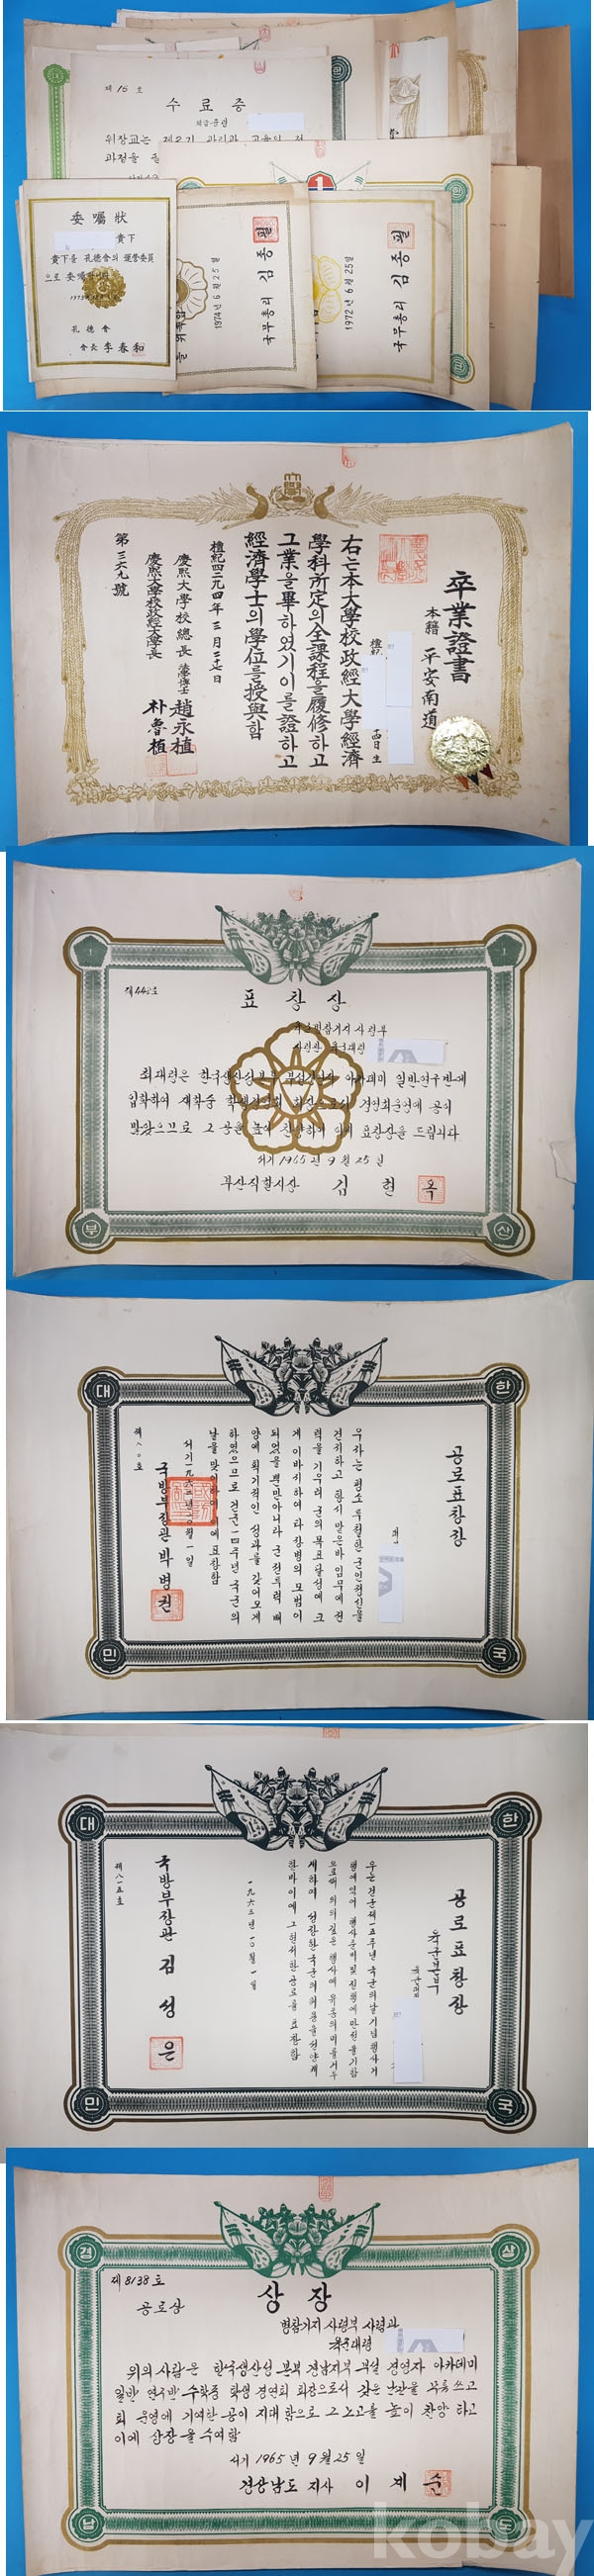 제 16 호
수 료 증
위장교는 제2기 관리과
과정을
1
委囑狀
貴下
貴下를 孔德會의 運營委員
으로 委囑
孔德會
會長 李春和
1974년 6월 25일
국무총리 김종필
1972년 6월 25일
국무총리 김종필
卒業證書
本籍 平安南道
檀紀
日生
右는本大學校政經大學經濟
學科所定의全課程을履修하고
그業을畢하였기이를證하고
經濟學士의學位를授與함
檀紀四二九四年 三月 二十七日
慶熙大學校總長 法學博士 趙永植
慶熙大學校政經大學長 朴魯植
第三六九號
제440호
표 창 상
사령관 육군대령
최대령은 한국생산성본부 부산 아카데미 일반연구반에
입학하여 재학중 학생 회장으로서 경영회운영에 공이
많았으므로 그 공을 높이 찬양하기 위해 표창장을 드립니다
서기 1965년 9월 25일
부산직할시장 김 현 옥
부 산
대 한
공로표창장
우자는 평소 투철한 군인정신을
견지하고 항시 맡은바 임무에 전
력을 기우려 군의 목표달성에 크
게 이바지하여 타장병의 모범이
되었을뿐만아니라 군 전투력 배
양에 획기적인 성과를 갖어오게
하였으므로 건군 一四주년 국군의
날을 맞이하여 이에 표창함
서기 一九六二년 一○월 一일
국방부장관 박병권
제八○호
민 국
대 한
공로표창장
육군본부
우는 건군제一五주년 국군의날 기념행사거
행에있어 행사준비 및 진행에 만전을 기함
으로써 의의깊은 행사에 유종의 미를 거두
게하여 성장한 국군의 위용을 선양케
한바 이에 그 현저한 공로를 표창함
一九六三년 一○월 一일
국방부장관 김 성 은
제八一五호
민 국
경 상
제8138호
상 장
공로상
병참기지 사령부 사령관
육군대령
위의 사람은 한국생산성 본부 경남지부 부설 경영자 아카데미
일반 연구반 수학중 학생 경연회 회장으로서 갖은 난관을 무릅쓰고
회 운영에 기여한 공이 지대 함으로 그 노고를 높이 찬양 하고
이에 상장을 수여함
서기 1965년 9월 25일
경상남도 지사 이 계 순
남 도
kobay